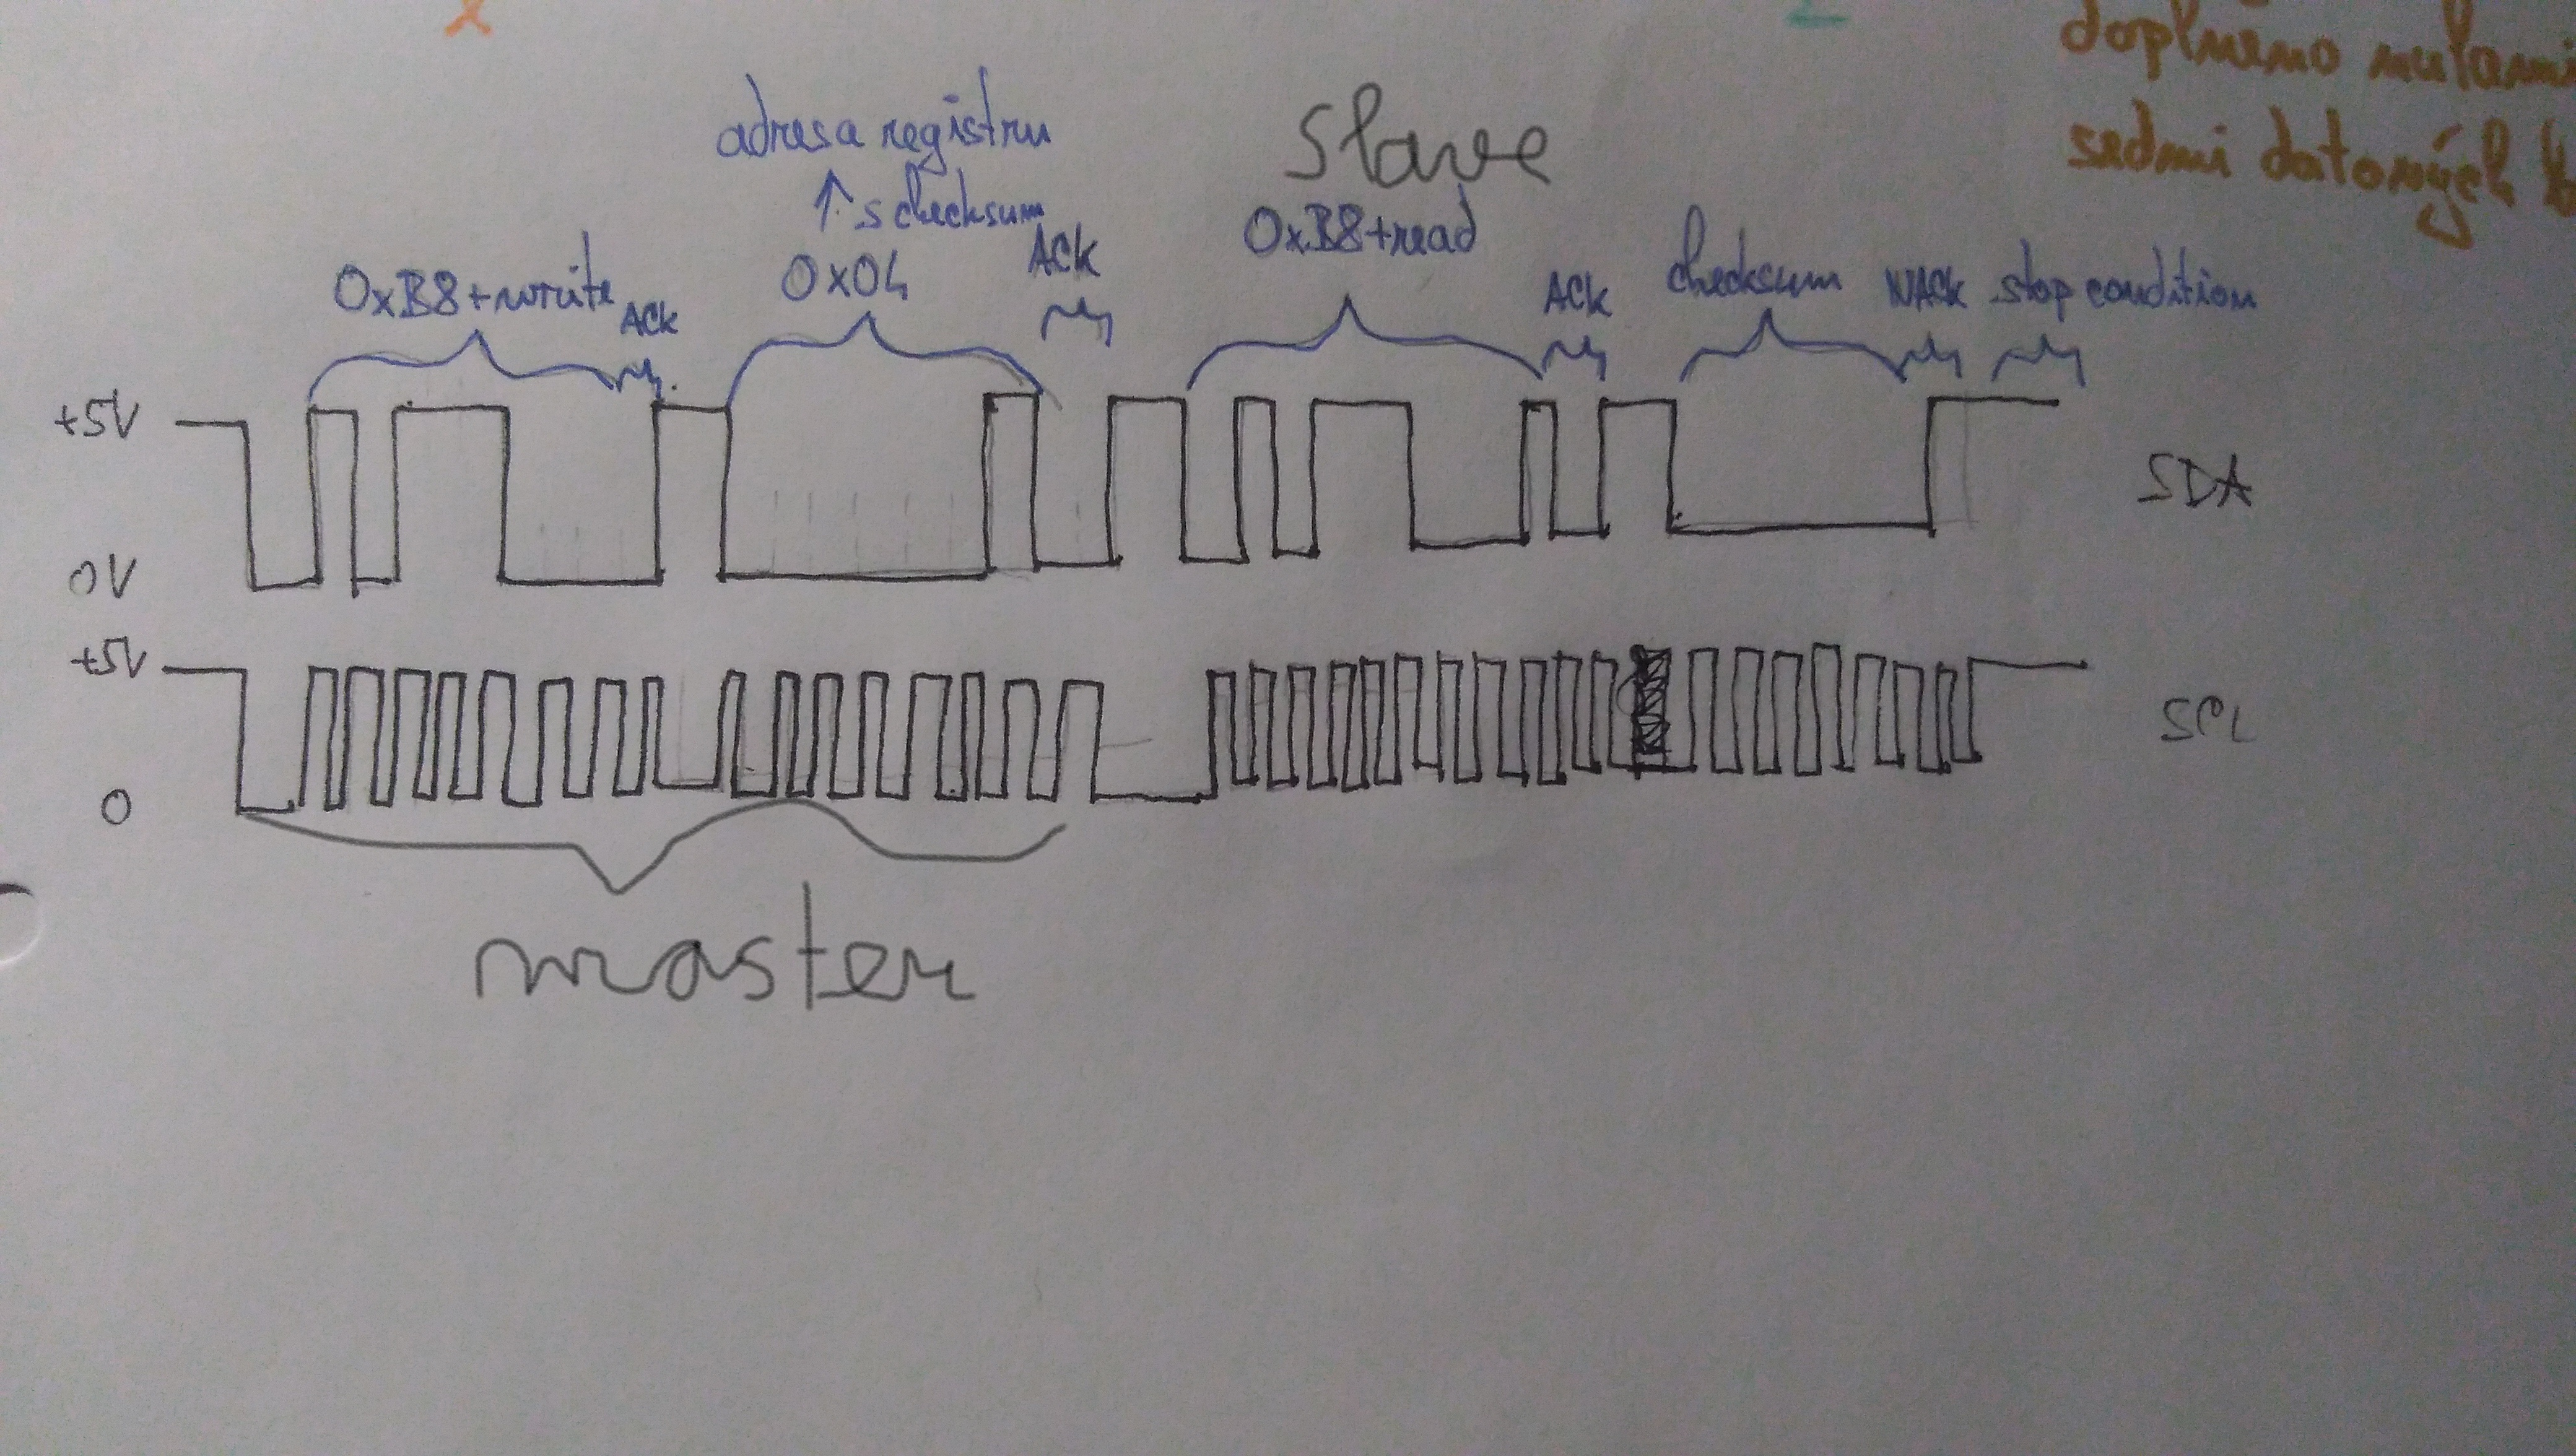 doplněno nulami
sedmi datových
adresa registru
↑ s checksum
Slave
0xB8+write
ACK
0x04
ACK
0xB8+read
ACK
checksum
NACK
stop condition
+5V
SDA
0V
+5V
SCL
0
master